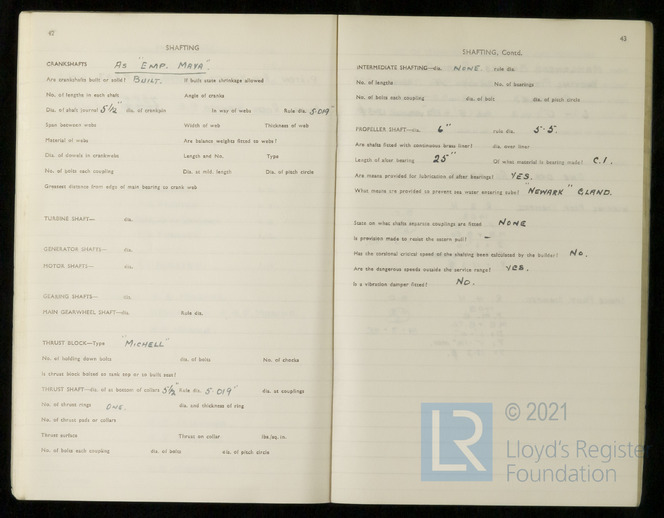 42
SHAFTING
CRANKSHAFTS As "EMP. MAYA".
Are crankshafts built or solid? BUILT. If built state shrinkage allowed
No. of lengths in each shaft Angle of cranks
Dia. of shaft journal 5½" dia. of crankpin in way of webs Rule dia. 5.019"
Span between webs Width of web Thickness of web
Material of webs Are balance weights fitted to webs?
Dia. of dowels in crankwebs Length and No. Type
No. of bolts each coupling Dia. at mid. length Dia. of pitch circle
Greatest distance from edge of main bearing to crank web
TURBINE SHAFT— dia.
GENERATOR SHAFTS— dia.
MOTOR SHAFTS— dia.
GEARING SHAFTS— dia.
MAIN GEARWHEEL SHAFT—dia. Rule dia.
THRUST BLOCK—Type "MICHELL"
No. of holding down bolts dia. of bolts No. of chocks
Is thrust block bolted to tank top or to built seat?
THRUST SHAFT—dia. of at bottom of collars 5½" Rule dia. 5.019" dia. at couplings
No. of thrust rings ONE. dia. and thickness of ring
No. of thrust pads or collars
Thrust surface Thrust on collar lbs/sq. in.
No. of bolts each coupling dia. of bolts dia. of pitch circle
43
SHAFTING, Contd.
INTERMEDIATE SHAFTING—dia. NONE. rule dia.
No. of lengths No. of bearings
No. of bolts each coupling dia. of bolt dia. of pitch circle
PROPELLER SHAFT—dia. 6" rule dia. 5.5.
Are shafts fitted with continuous brass liner? dia. over liner
Length of after bearing 25" Of what material is bearing made? C.I.
Are means provided for lubrication of after bearings? YES.
What means are provided to prevent sea water entering tube? "NEWARK" GLAND.
State on what shafts separate couplings are fitted NONE
Is provision made to resist the astern pull? —
Has the torsional critical speed of the shafting been calculated by the builder? No.
Are the dangerous speeds outside the service range? YES.
Is a vibration damper fitted? No.
LR
© 2021
Lloyd's Register
Foundation